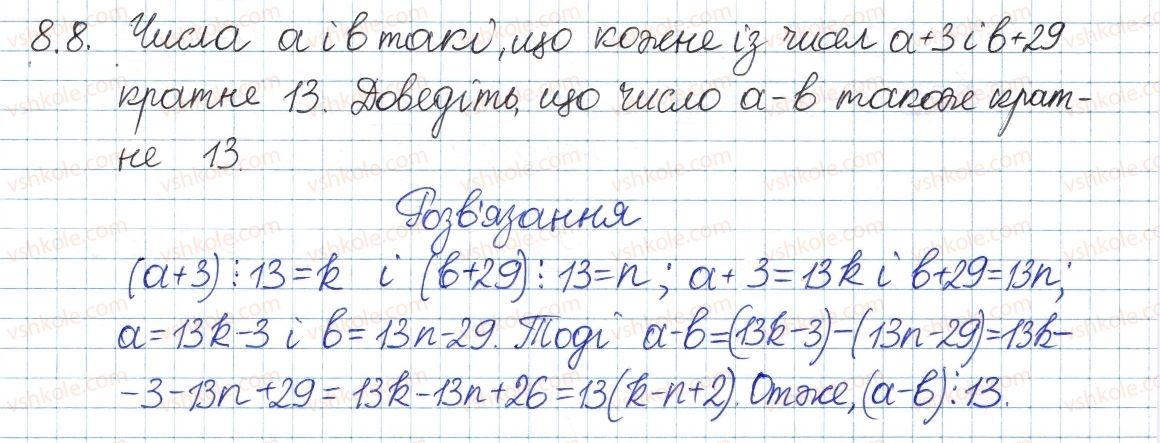 8.8. Числа a і в такі, що кожне із чисел a+3 і в+29
кратне 13. Доведіть, що число a-в також крат-
не 13.
Розв'язання
(a+3)⋮13=k і (в+29)⋮13=n; a+3=13k і в+29=13n;
a=13k-3 і в=13n-29. Тоді a-в=(13k-3)-(13n-29)=13k-
-3-13n+29=13k-13n+26=13(k-n+2). Отже, (a-в)⋮13.